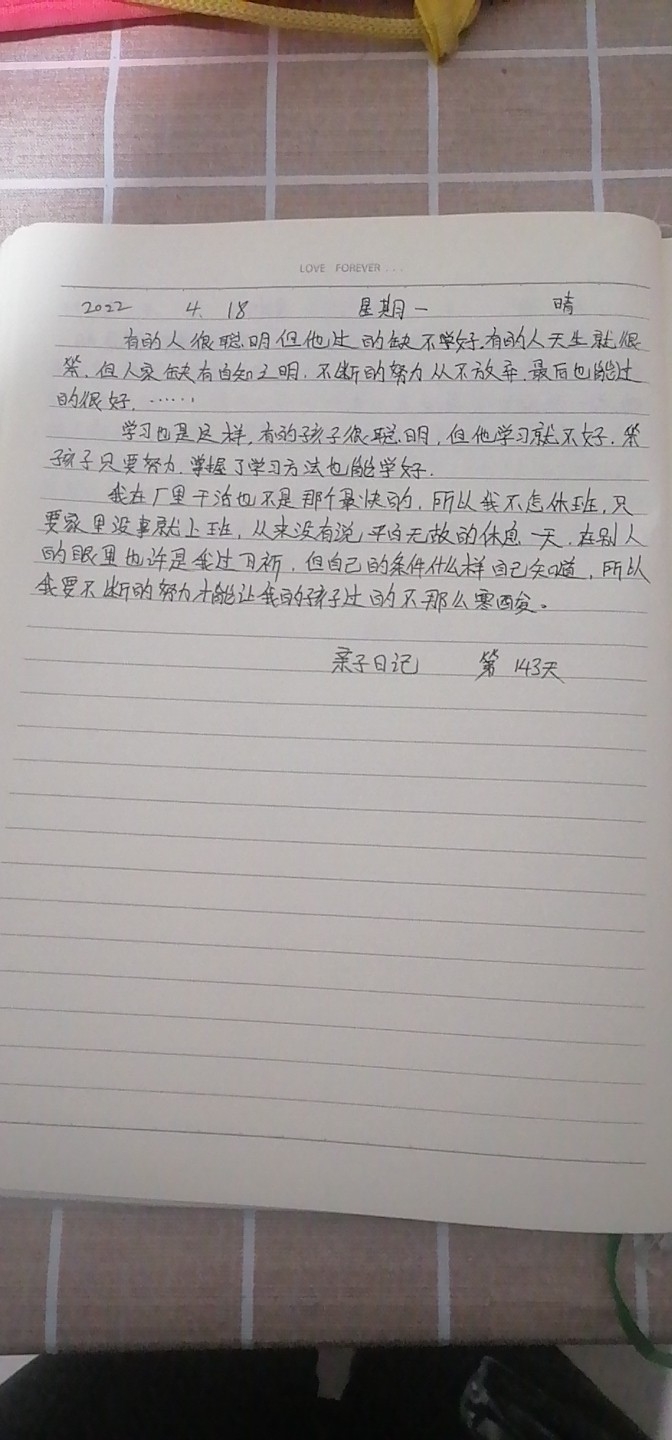 LOVE FOREVER . . .
2022 4. 18 星期一 晴
有的人很聪明但他过的缺不学好,有的人天生就很
笨,但人家缺有自知之明,不断的努力从不放弃,最后也能过
的很好,……
学习也是这样,有的孩子很聪明,但他学习就不好,笨
孩子只要努力,掌握了学习方法也能学好.
我在厂里干活也不是那个最快的,所以我不怎休班,只
要家里没事就上班,从来没有说平白无故的休息一天,在别人
的眼里也许是我过日祈,但自己的条件什么样自己知道,所以
我要不断的努力才能让我的孩子过的不那么寒酸。
亲子日记 第143天